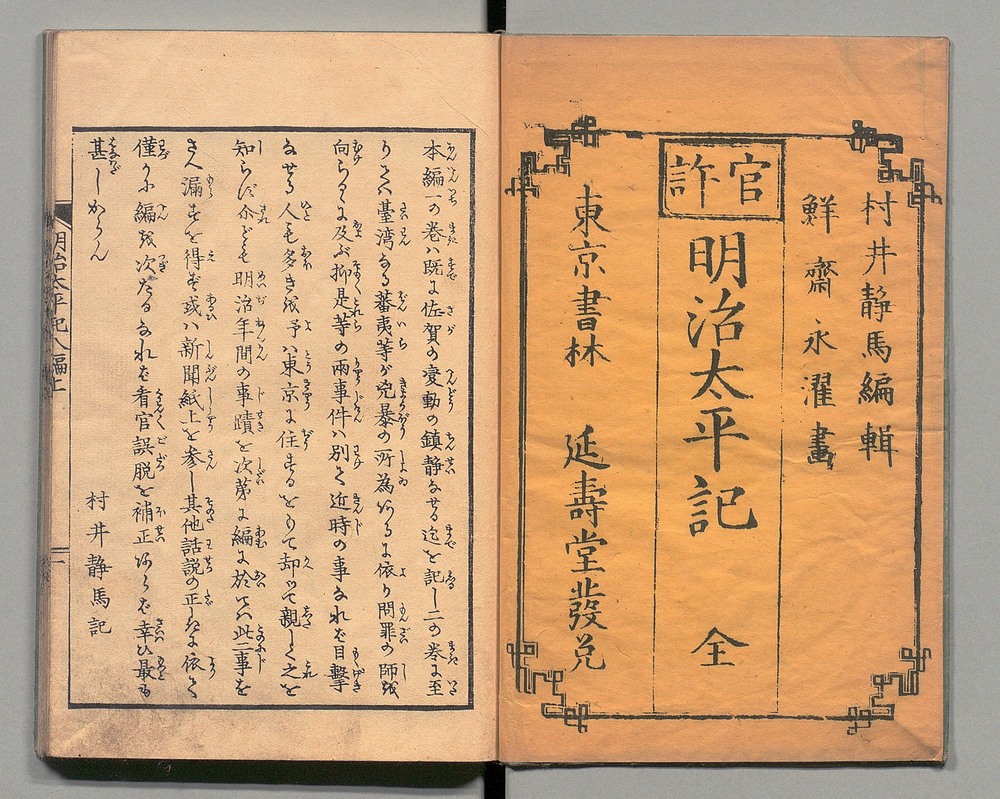 村井靜馬編輯
鮮齋永濯畫
官許
明治太平記 全
東京書林 延壽堂發兌
本編一の巻ハ既に佐賀の変動の鎮静なせる迄を記し二の巻に至
りてハ臺湾なる蕃夷等が兇暴の所為あるに依り問罪の師を
向らるゝに及ぶ抑是等の兩事件ハ別て近時の事なれば目撃
なせる人も多きを予ハ東京に住するをもて却つて親しく之を
知らず尓ども明治年間の事蹟を次第に編に於てハ此二事を
さへ漏すを得ず或ハ新聞紙上を参し其他話説の正しきに依て
僅かに編を次たるなれば看官誤脱を補正あらば幸ひ最も
甚しからん
村井靜馬記
明治太平記八編上
一